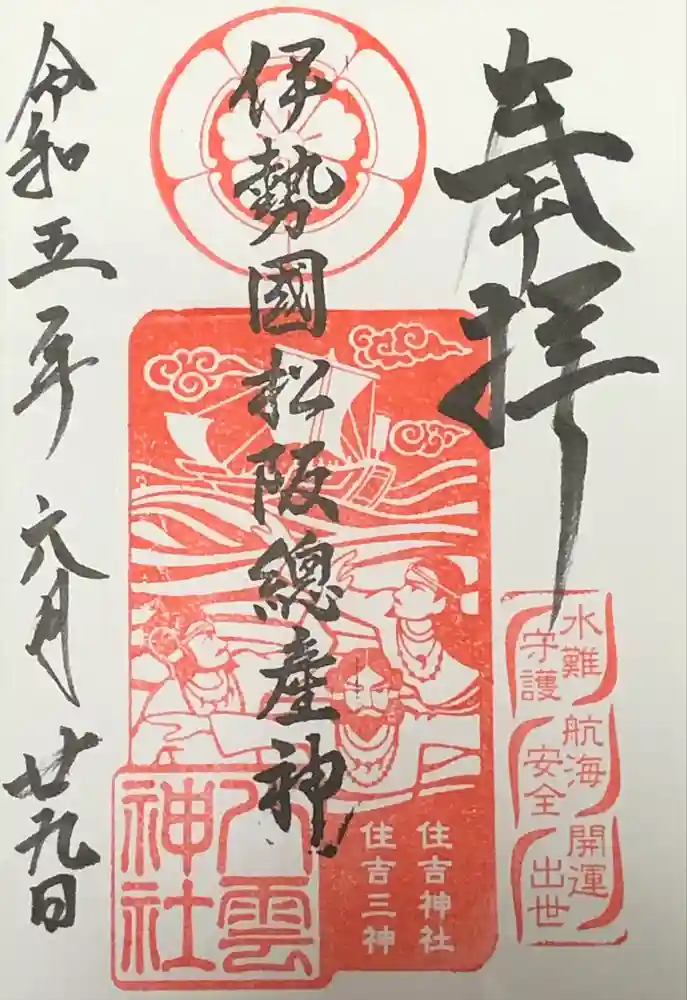 奉拝
水難
守護
航海
安全
開運
出世
伊勢國松阪總産神
住吉神社
住吉三神
八雲
神社
令和五年六月廿九日